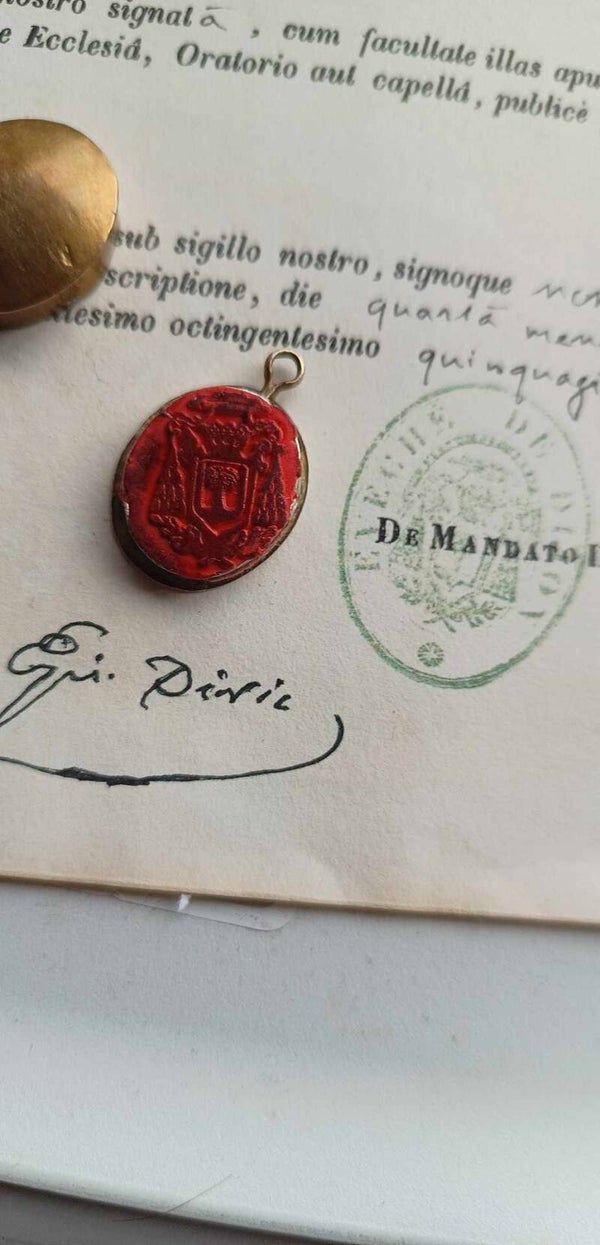 nostro signatā, cum facultate illas apu
e Ecclesiâ, Oratorio aut capellâ, publicè
sub sigillo nostro, signoque
scriptione, die quartâ men
tesimo octingentesimo quinquagi
EVÊCHÉ DE
DE MANDATO
Epi. Divic